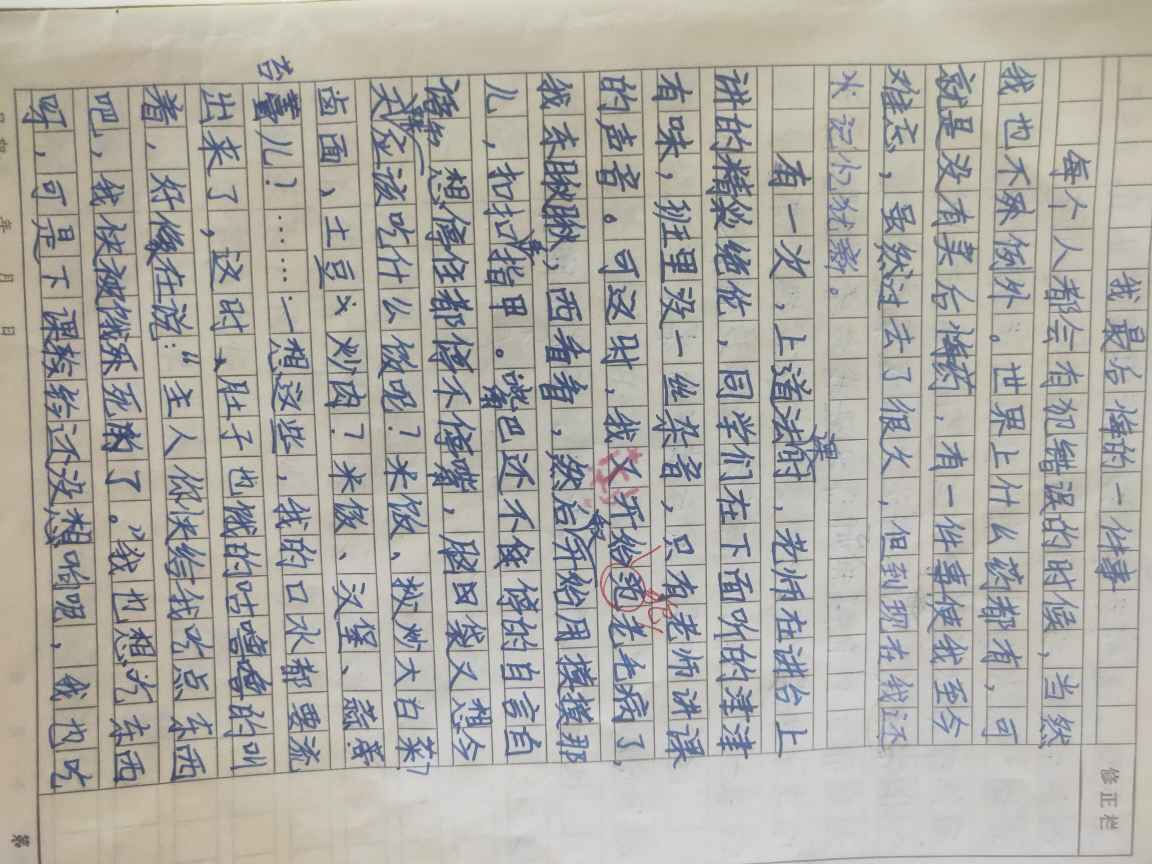 我最后悔的一件事
每个人都会有犯错误的时候，当然
我也不例外。世界上什么药都有，可
就是没有卖后悔药，有一件事使我至今
难忘，虽然过去了很久，但到现在我还
记忆犹新。
有一次，上道法课时，老师在讲台上
讲的精彩绝伦，同学们在下面听的津津
有味，班里没一丝杂音，只有老师讲课
的声音。可这时，我又开始犯老毛病了，
我东瞅瞅，西看看，然后又开始用摸摸那
儿，扣扣手指甲。嘴巴还不停的自言自
语，想停住都停不住嘴，脑袋又想今
天应该吃什么饭呢？米饭、拔炒大白菜？
卤面，土豆火炒肉？米饭、汉堡、蒜薹
苔儿？……一想这些，我的口水都要流
出来了，这时、肚子也饿的咕噜噜的叫
着，好像在说：“主人你快给我吃点东西
吧，我快被饿死的了。”我也想吃东西
呀，可是下课铃还没想响呢，我也吃
修正栏
年 月 日
第